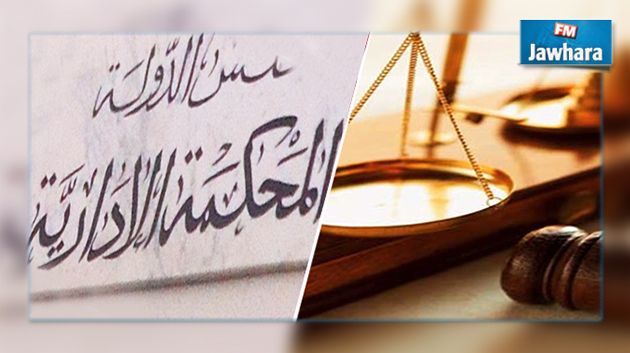 الدّولة
المحكمة الاداريّة
FM
Jawhara